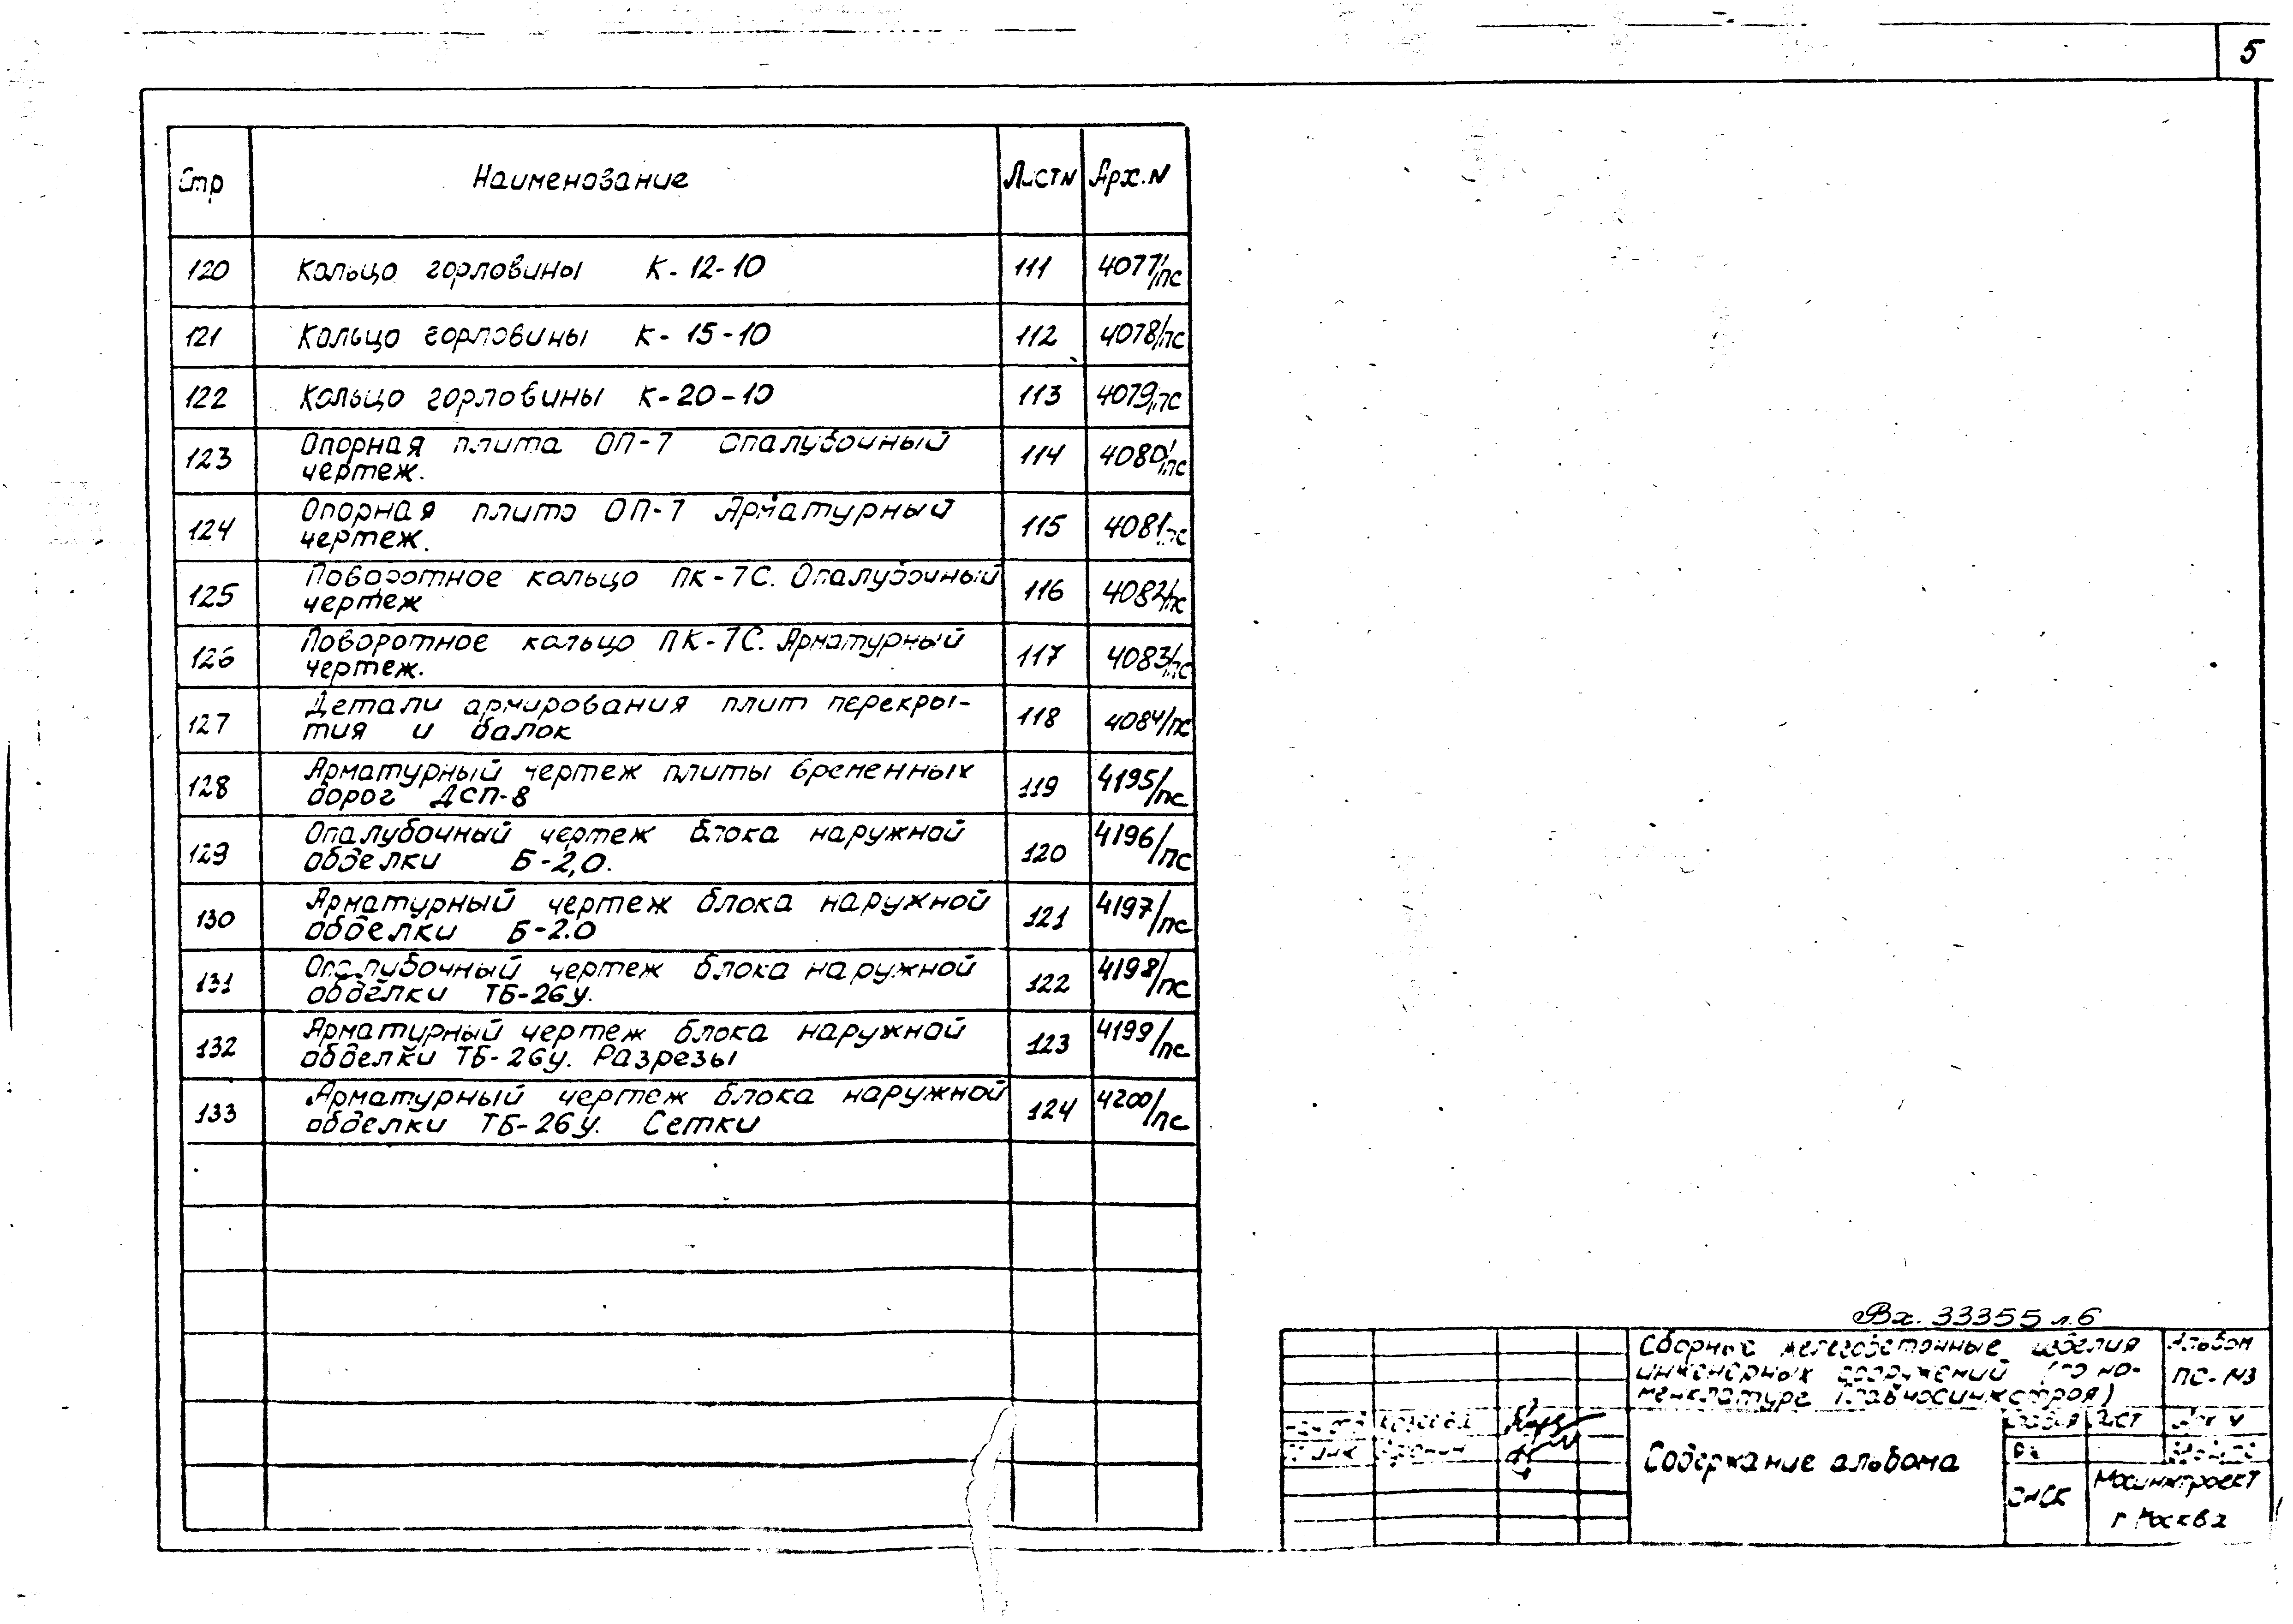 5
Стр Наименование Лист N Арх. N
120 Кольцо горловины К-12-10 111 4077/пс
121 Кольцо горловины К-15-10 112 4078/пс
122 Кольцо горловины К-20-10 113 4079/пс
123 Опорная плита ОП-7 Опалубочный 114 4080/пс
чертеж.
124 Опорная плита ОП-7 Арматурный 115 4081/пс
чертеж.
125 Поворотное кольцо ПК-7С. Опалубочный 116 4082/пс
чертеж
126 Поворотное кольцо ПК-7С. Арматурный 117 4083/пс
чертеж.
127 Детали армирования плит перекры- 118 4084/пс
тия и балок
128 Арматурный чертеж плиты временных 119 4195/пс
дорог ДСП-8
129 Опалубочный чертеж блока наружной 120 4196/пс
обделки Б-2,0.
130 Арматурный чертеж блока наружной 121 4197/пс
обделки Б-2.0
131 Опалубочный чертеж блока наружной 122 4198/пс
обделки ТБ-26у.
132 Арматурный чертеж блока наружной 123 4199/пс
обделки ТБ-26у. Разрезы
133 Арматурный чертеж блока наружной 124 4200/пс
обделки ТБ-26у. Сетки
Вх. 33355 л.6
Сборные железобетонные изделия Альбом
инженерных сооружений (по но- ПС-
менклатуре Главмосинжстроя)
Лист
Содержание альбома
Мосинжпроект
г Москва